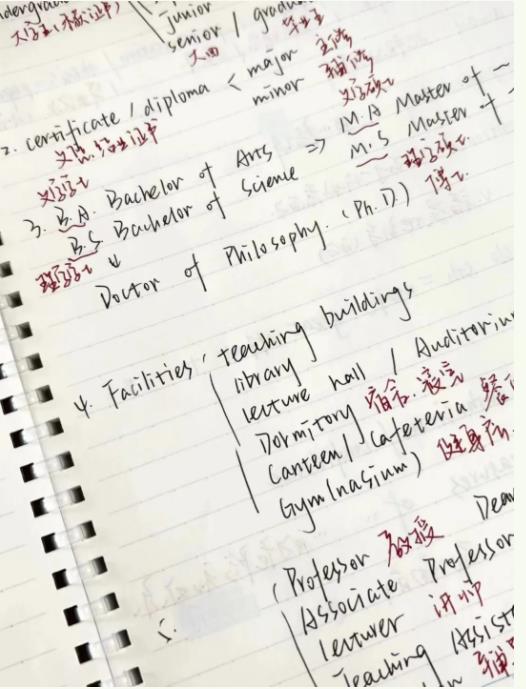 junior
senior / gradu
大四 毕业生
2. certificate / diploma < major 主修
minor 辅修
文凭. 结业证书 文学硕士
文学学士
3. B.A. Bachelor of Arts => M.A Master of ~
B.S. Bachelor of Science M.S Master of ~
理学学士 理学硕士
Doctor of Philosophy. (Ph.D.) 博士
4. Facilities, teaching buildings
library
lecture hall / Auditorium
Dormitory 宿舍. 寝室
Canteen / Cafeteria 餐
Gym(nasium) 健身房.
Professor 教授 Dean
Associate Professor
lecturer 讲师
Teaching Assist